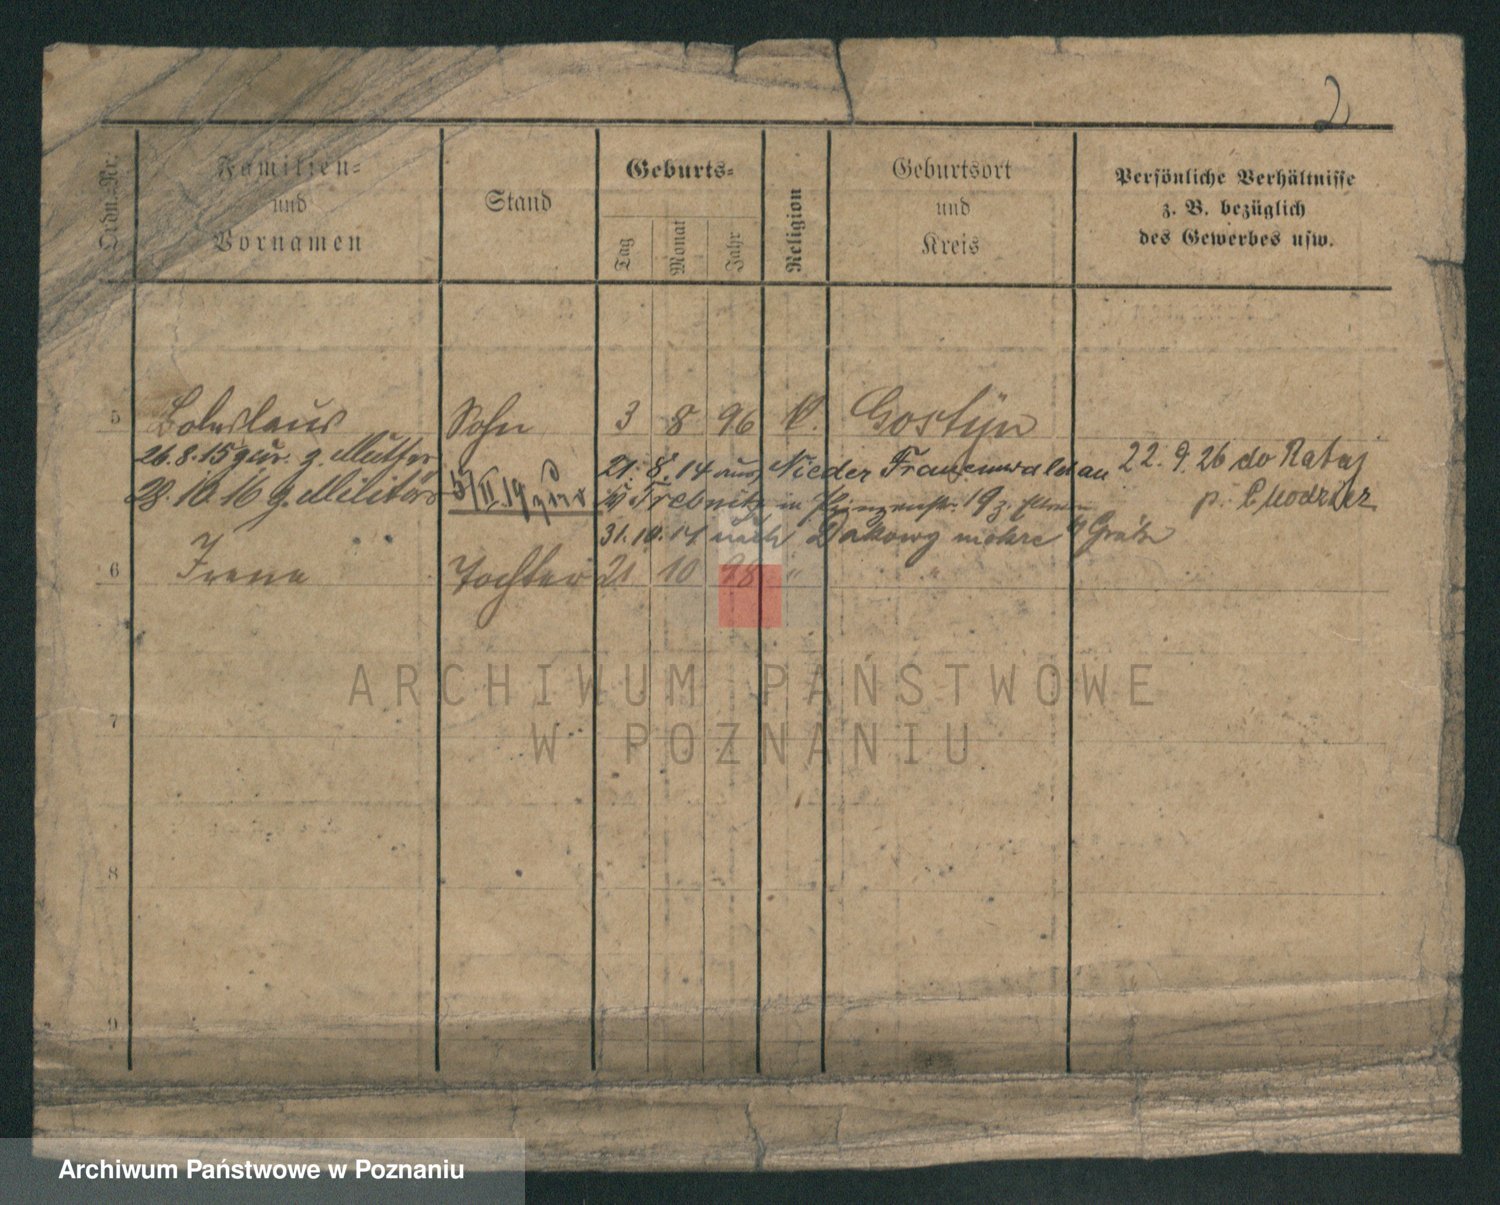 2
Ordn.-Nr.
Familien-
und
Vornamen
Stand
Geburts-
Tag
Monat
Jahr
Religion
Geburtsort
und
Kreis
Persönliche Verhältnisse
z. B. bezüglich
des Gewerbes usw.
5 Boleslaus Sohn 3 8 96 K. Gostÿn
26.8.15 zur. z. Mutter
28.10.16 z. Militär
5/II.19 zur
21. 8. 14 aus Nieder Frauenwaldau
Trebnitz in 19 z. Eltern
31.10.14 nach Dakowy mokre Grätz
22. 9. 26 do Rataj
p. Chodzież
6 Irena Tochter 21 10 98 " "
7
8
9
ARCHIWUM PAŃSTWOWE
W POZNANIU
Archiwum Państwowe w Poznaniu